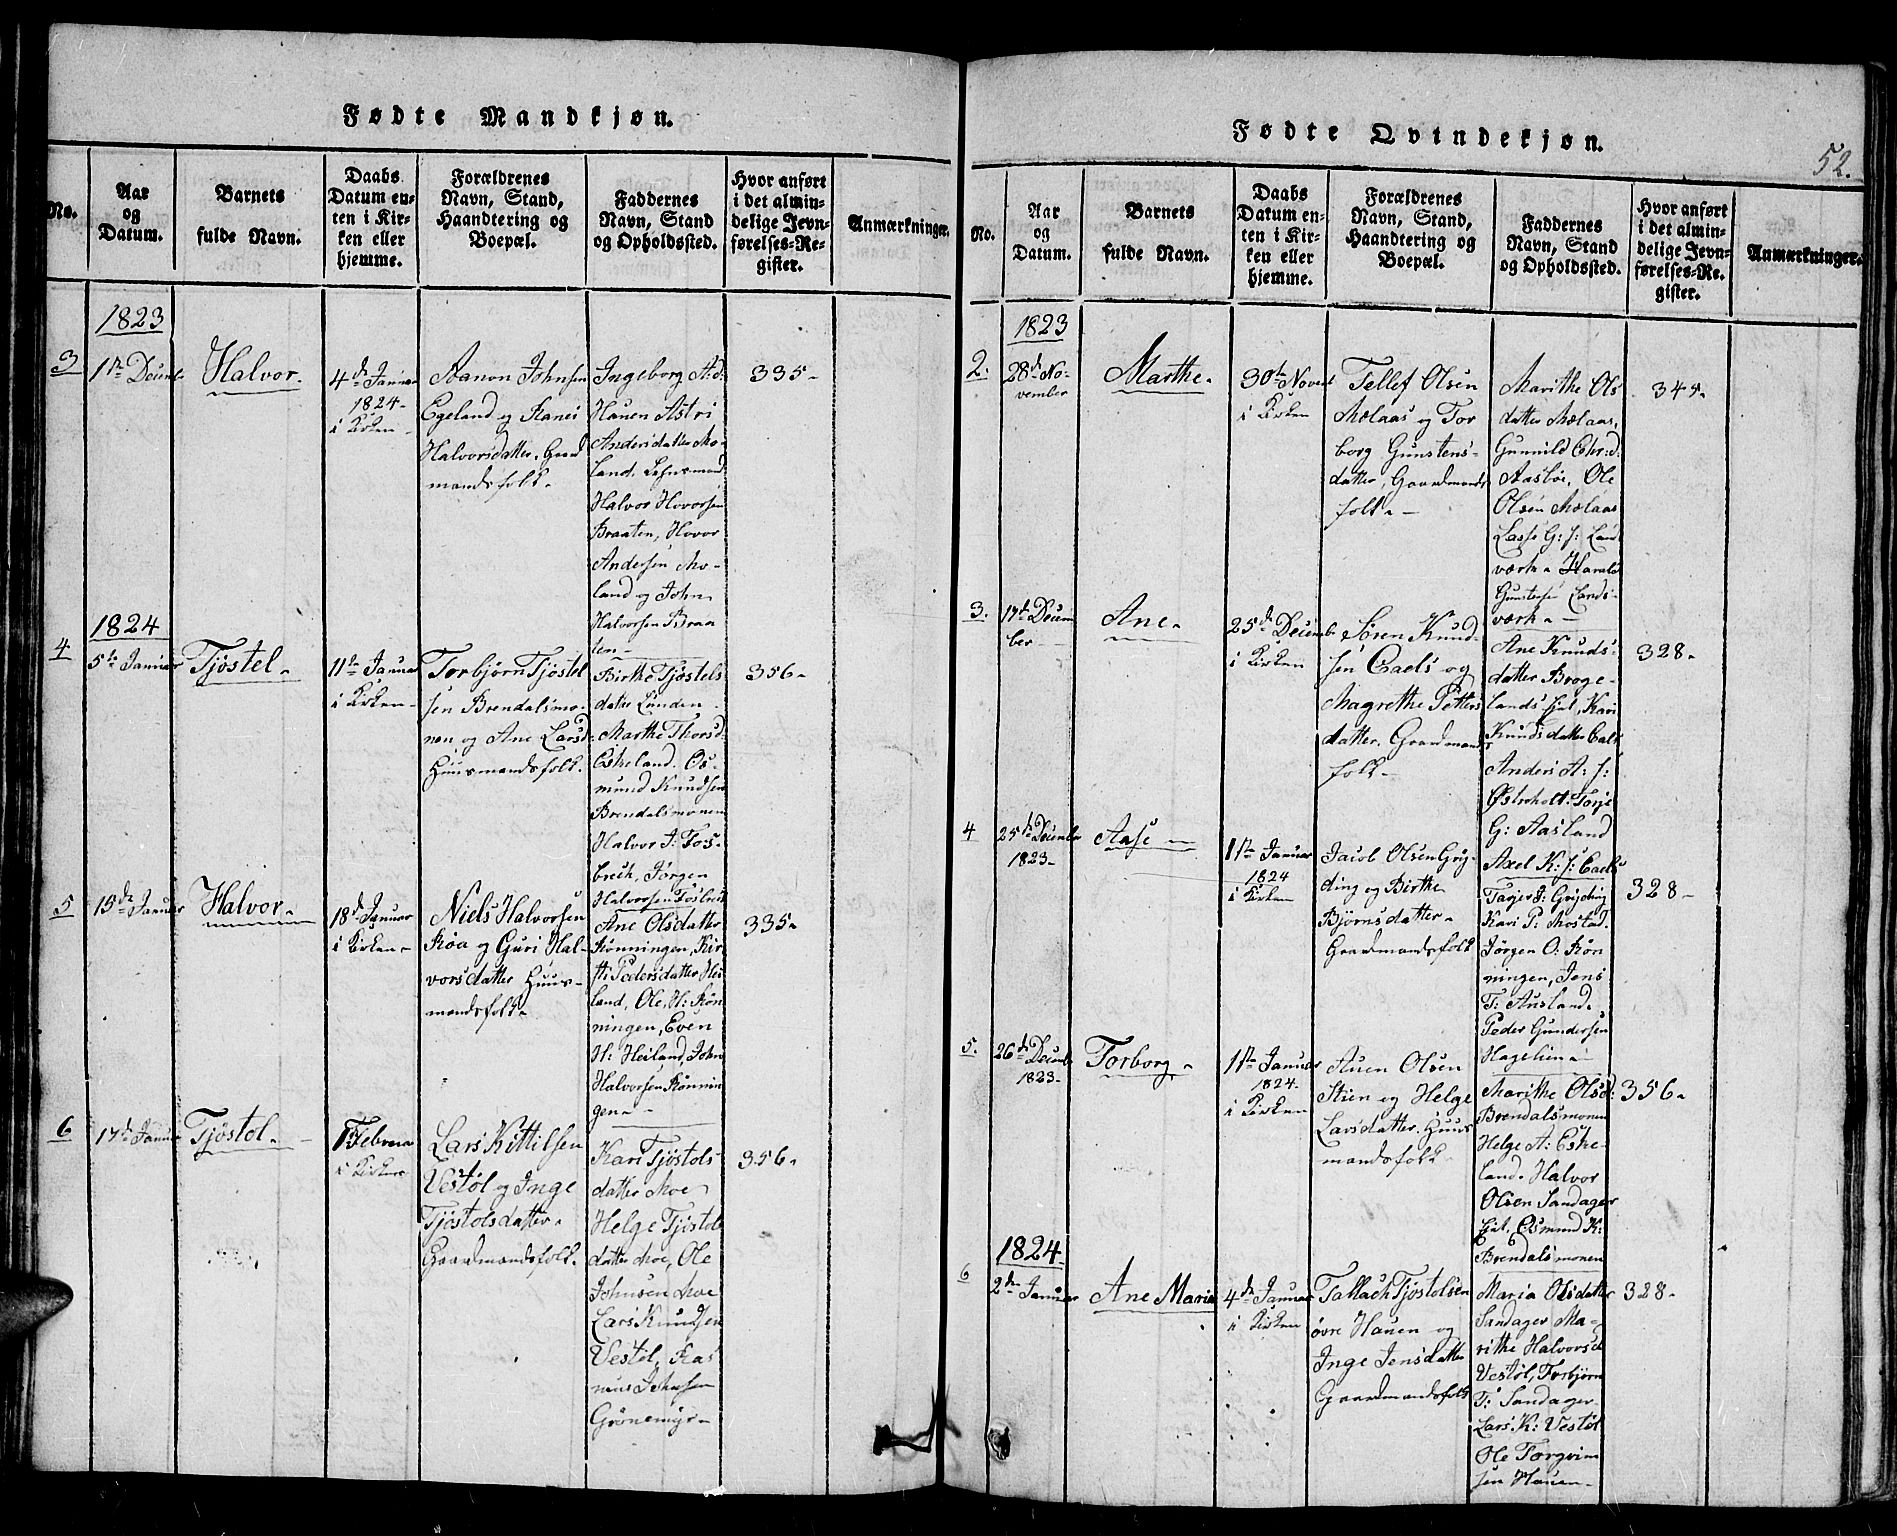 Fødte Mandkjøn.
No.
Aar
og
Datum.
Barnets
fulde Navn.
Daabs
Datum en-
ten i Kir-
ken eller
hjemme.
Forældrenes
Navn, Stand,
Haandtering og
Boepæl.
Faddernes
Navn, Stand
og Opholdssted.
Hvor anført
i det almin-
delige Jevn-
førelses-Re-
gister.
Anmærkninger.
1823
3
Halvor.
4de Januar
1824
i Kirken
Aanon Johnsen
Egeland og
Halvorsdatter. Gaard
mandsfolk
Ingeborg A:d:
Hauen Astri
Andersdatter Mo-
land. Lehnsmand
Halvor Hovorsen
Braaten, Hovor
Andersen Mo-
land og John
Halvorsen Braa
ten
335
1824
4
5te Januar
Tjøstel
11te Januar
i Kirken
Torbjørn Tjøstel
sen Brendalsmo-
nen og Ane Larsd:
Huusmandsfolk.
Birthe Tjøstels
datter Lunden
Marthe Thorsd:
Eskeland. Os-
mund Knudsen
Brendalsmonen
Halvor J: Fos-
brech. Jørgen
Halvorsen
356
5
15de Januar
Halvor
18de Januar
i Kirken
Niels Halvorsen
Roa og Guri Hal-
vorsdatter Huus-
mandsfolk
Ane Olsdatter
Rønningen, Kir-
sti Pedersdatter Hei
land, Ole H: Røn
ningen, Even
H: Heiland, John
Halvorsen Rønnin
gen
335
6
17de Januar
Tjøstol
Februar
i Kirken
Lars Kittilsen
Vestøl og Inge
Tjøstolsdatter
Gaardmandsfolk.
Kari Tjøstols
datter Moe
Helge Tjøstols
datter Moe, Ole
Johnsen Moe
Lars Knudsen
Vestøl, Ras
mus Johnsen
Grønemyr
356
Fødte Qvindekjøn.
52.
No.
Aar
og
Datum.
Barnets
fulde Navn.
Daabs
Datum en-
ten i Kir-
ken eller
hjemme.
Forældrenes
Navn, Stand,
Haandtering og
Boepæl.
Faddernes
Navn, Stand
og Opholdssted.
Hvor anført
i det almin-
delige Jevn-
førelses-Re-
gister.
Anmærkninger.
1823
2.
28de No-
vember
Marthe
30te Novemb
i Kirken
Tellef Olsen
Mølaas og Tor
borg Gunstens-
datter, Gaardmands
folk
Marithe Ols
datter Mølaas,
Gunnild Chr:d:
Aasbøe, Ole
Olsen Mølaas
Lasse G: s: Land
værk Harald
Gunstensen Lands-
værk
345
3.
17de Decem
ber
Ane
25de Decemb
i Kirken
Søren Knud-
sen Caels og
Magrethe Petters
datter. Gaardmands
folk
Ane Knuds-
datter Broge-
lands
Knudsdatter
Anders A: s:
Østreholt. Torje
G: Aasland
Axel K: s: Caels
328
4
25de Decembr
1823
Aase
1ste Januar
1824
i Kirken
Jacob Olsen Gry-
ding og Birthe
Bjørnsdatter
Gaardmandsfolk
Tarjer J: Gryding
Kari P: Mostad.
Jørgen O: Røn
ningen, Jens
T: Ausland
Peder Gundersen
328
5.
26de Decemb
1823
Torborg
1ste Januar
1824
i Kirken
Auen Olsen
Stien og Helge
Larsdatter. Huus
mandsfolk
Marithe Olsd:
Brendalsmonen
Helge A: Eske-
land. Halvor
Olsen Sandager
Osmund K:
Brendalsmonen
356
1824
6
2de Januar
Ane Maria
4de Januar
i Kirken
Tallach Tjøstolsen
øvre Hauen og
Inge Jensdatter
Gaardmandsfolk
Maria Olsdatter
Sandager Ma-
rithe Halvorsd
Vestøl, Torbjørn
T: Sandager
Lars K: Vestøl
Ole Torgrim
sen Hauen
328